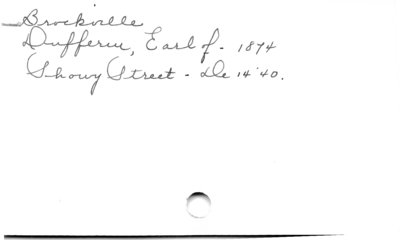 Brockville
Dufferin, Earl of - 1874
Showy Street - De 14 '40.